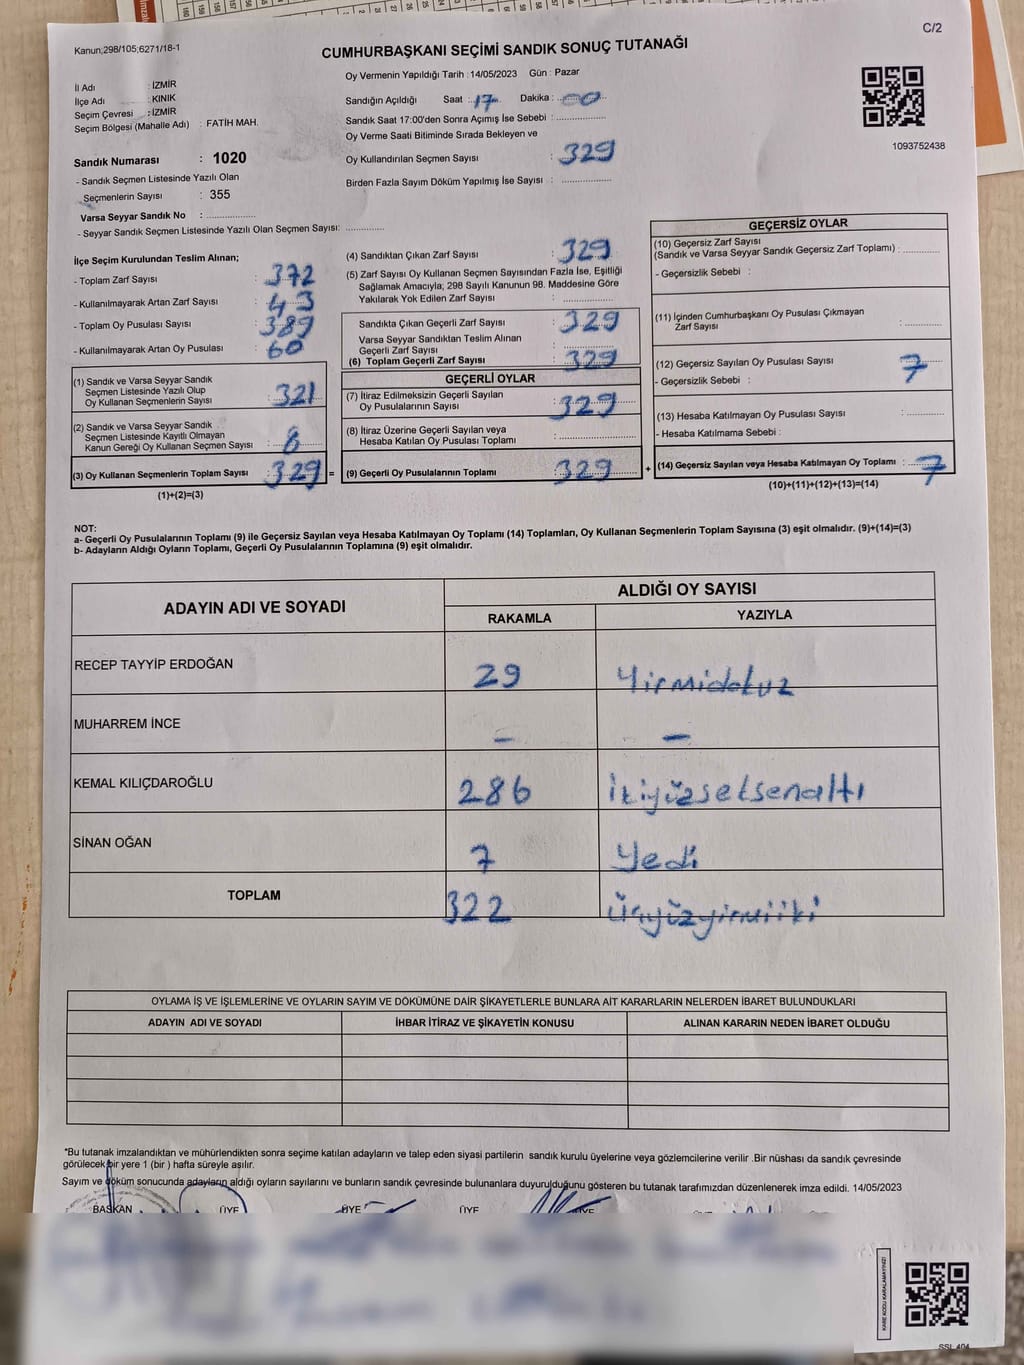 C/2
Kanun;298/105;6271/18-1
CUMHURBAŞKANI SEÇİMİ SANDIK SONUÇ TUTANAĞI
İl Adı : İZMİR
İlçe Adı : KINIK
Seçim Çevresi : İZMİR
Seçim Bölgesi (Mahalle Adı) : FATİH MAH.
Sandık Numarası : 1020
- Sandık Seçmen Listesinde Yazılı Olan
Seçmenlerin Sayısı : 355
Varsa Seyyar Sandık No :
- Seyyar Sandık Seçmen Listesinde Yazılı Olan Seçmen Sayısı:
Oy Vermenin Yapıldığı Tarih : 14/05/2023 Gün : Pazar
Sandığın Açıldığı Saat : 17 Dakika : 00
Sandık Saat 17:00'den Sonra Açımış İse Sebebi :
Oy Verme Saati Bitiminde Sırada Bekleyen ve
Oy Kullandırılan Seçmen Sayısı : 329
Birden Fazla Sayım Döküm Yapılmış İse Sayısı :
1093752438
İlçe Seçim Kurulundan Teslim Alınan;
- Toplam Zarf Sayısı : 372
- Kullanılmayarak Artan Zarf Sayısı : 43
- Toplam Oy Pusulası Sayısı : 389
- Kullanılmayarak Artan Oy Pusulası : 60
(1) Sandık ve Varsa Seyyar Sandık
Seçmen Listesinde Yazılı Olup
Oy Kullanan Seçmenlerin Sayısı : 321
(2) Sandık ve Varsa Seyyar Sandık
Seçmen Listesinde Kayıtlı Olmayan
Kanun Gereği Oy Kullanan Seçmen Sayısı : 8
(3) Oy Kullanan Seçmenlerin Toplam Sayısı : 329 =
(1)+(2)=(3)
(4) Sandıktan Çıkan Zarf Sayısı : 329
(5) Zarf Sayısı Oy Kullanan Seçmen Sayısından Fazla İse, Eşitliği
Sağlamak Amacıyla; 298 Sayılı Kanunun 98. Maddesine Göre
Yakılarak Yok Edilen Zarf Sayısı :
Sandıkta Çıkan Geçerli Zarf Sayısı : 329
Varsa Seyyar Sandıktan Teslim Alınan
Geçerli Zarf Sayısı :
(6) Toplam Geçerli Zarf Sayısı : 329
GEÇERLİ OYLAR
(7) İtiraz Edilmeksizin Geçerli Sayılan
Oy Pusulalarının Sayısı : 329
(8) İtiraz Üzerine Geçerli Sayılan veya
Hesaba Katılan Oy Pusulası Toplamı :
(9) Geçerli Oy Pusulalarının Toplamı : 329 +
GEÇERSİZ OYLAR
(10) Geçersiz Zarf Sayısı
(Sandık ve Varsa Seyyar Sandık Geçersiz Zarf Toplamı) :
- Geçersizlik Sebebi :
(11) İçinden Cumhurbaşkanı Oy Pusulası Çıkmayan
Zarf Sayısı :
(12) Geçersiz Sayılan Oy Pusulası Sayısı : 7
- Geçersizlik Sebebi :
(13) Hesaba Katılmayan Oy Pusulası Sayısı :
- Hesaba Katılmama Sebebi :
(14) Geçersiz Sayılan veya Hesaba Katılmayan Oy Toplamı : 7
(10)+(11)+(12)+(13)=(14)
NOT:
a- Geçerli Oy Pusulalarının Toplamı (9) ile Geçersiz Sayılan veya Hesaba Katılmayan Oy Toplamı (14) Toplamları, Oy Kullanan Seçmenlerin Toplam Sayısına (3) eşit olmalıdır. (9)+(14)=(3)
b- Adayların Aldığı Oyların Toplamı, Geçerli Oy Pusulalarının Toplamına (9) eşit olmalıdır.
ADAYIN ADI VE SOYADI
ALDIĞI OY SAYISI
RAKAMLA YAZIYLA
RECEP TAYYİP ERDOĞAN 29 Yirmidokuz
MUHARREM İNCE - -
KEMAL KILIÇDAROĞLU 286 İkiyüzseksenaltı
SİNAN OĞAN 7 Yedi
TOPLAM 322 Üçyüzyirmiiki
OYLAMA İŞ VE İŞLEMLERİNE VE OYLARIN SAYIM VE DÖKÜMÜNE DAİR ŞİKAYETLERLE BUNLARA AİT KARARLARIN NELERDEN İBARET BULUNDUKLARI
ADAYIN ADI VE SOYADI İHBAR İTİRAZ VE ŞİKAYETİN KONUSU ALINAN KARARIN NEDEN İBARET OLDUĞU
*Bu tutanak imzalandıktan ve mühürlendikten sonra seçime katılan adayların ve talep eden siyasi partilerin sandık kurulu üyelerine veya gözlemcilerine verilir .Bir nüshası da sandık çevresinde
görülecek bir yere 1 (bir ) hafta süreyle asılır.
Sayım ve döküm sonucunda adayların aldığı oyların sayılarını ve bunların sandık çevresinde bulunanlara duyurulduğunu gösteren bu tutanak tarafımızdan düzenlenerek imza edildi. 14/05/2023
BAŞKAN ÜYE ÜYE ÜYE
KAREKODU KARALAMAYINIZ!